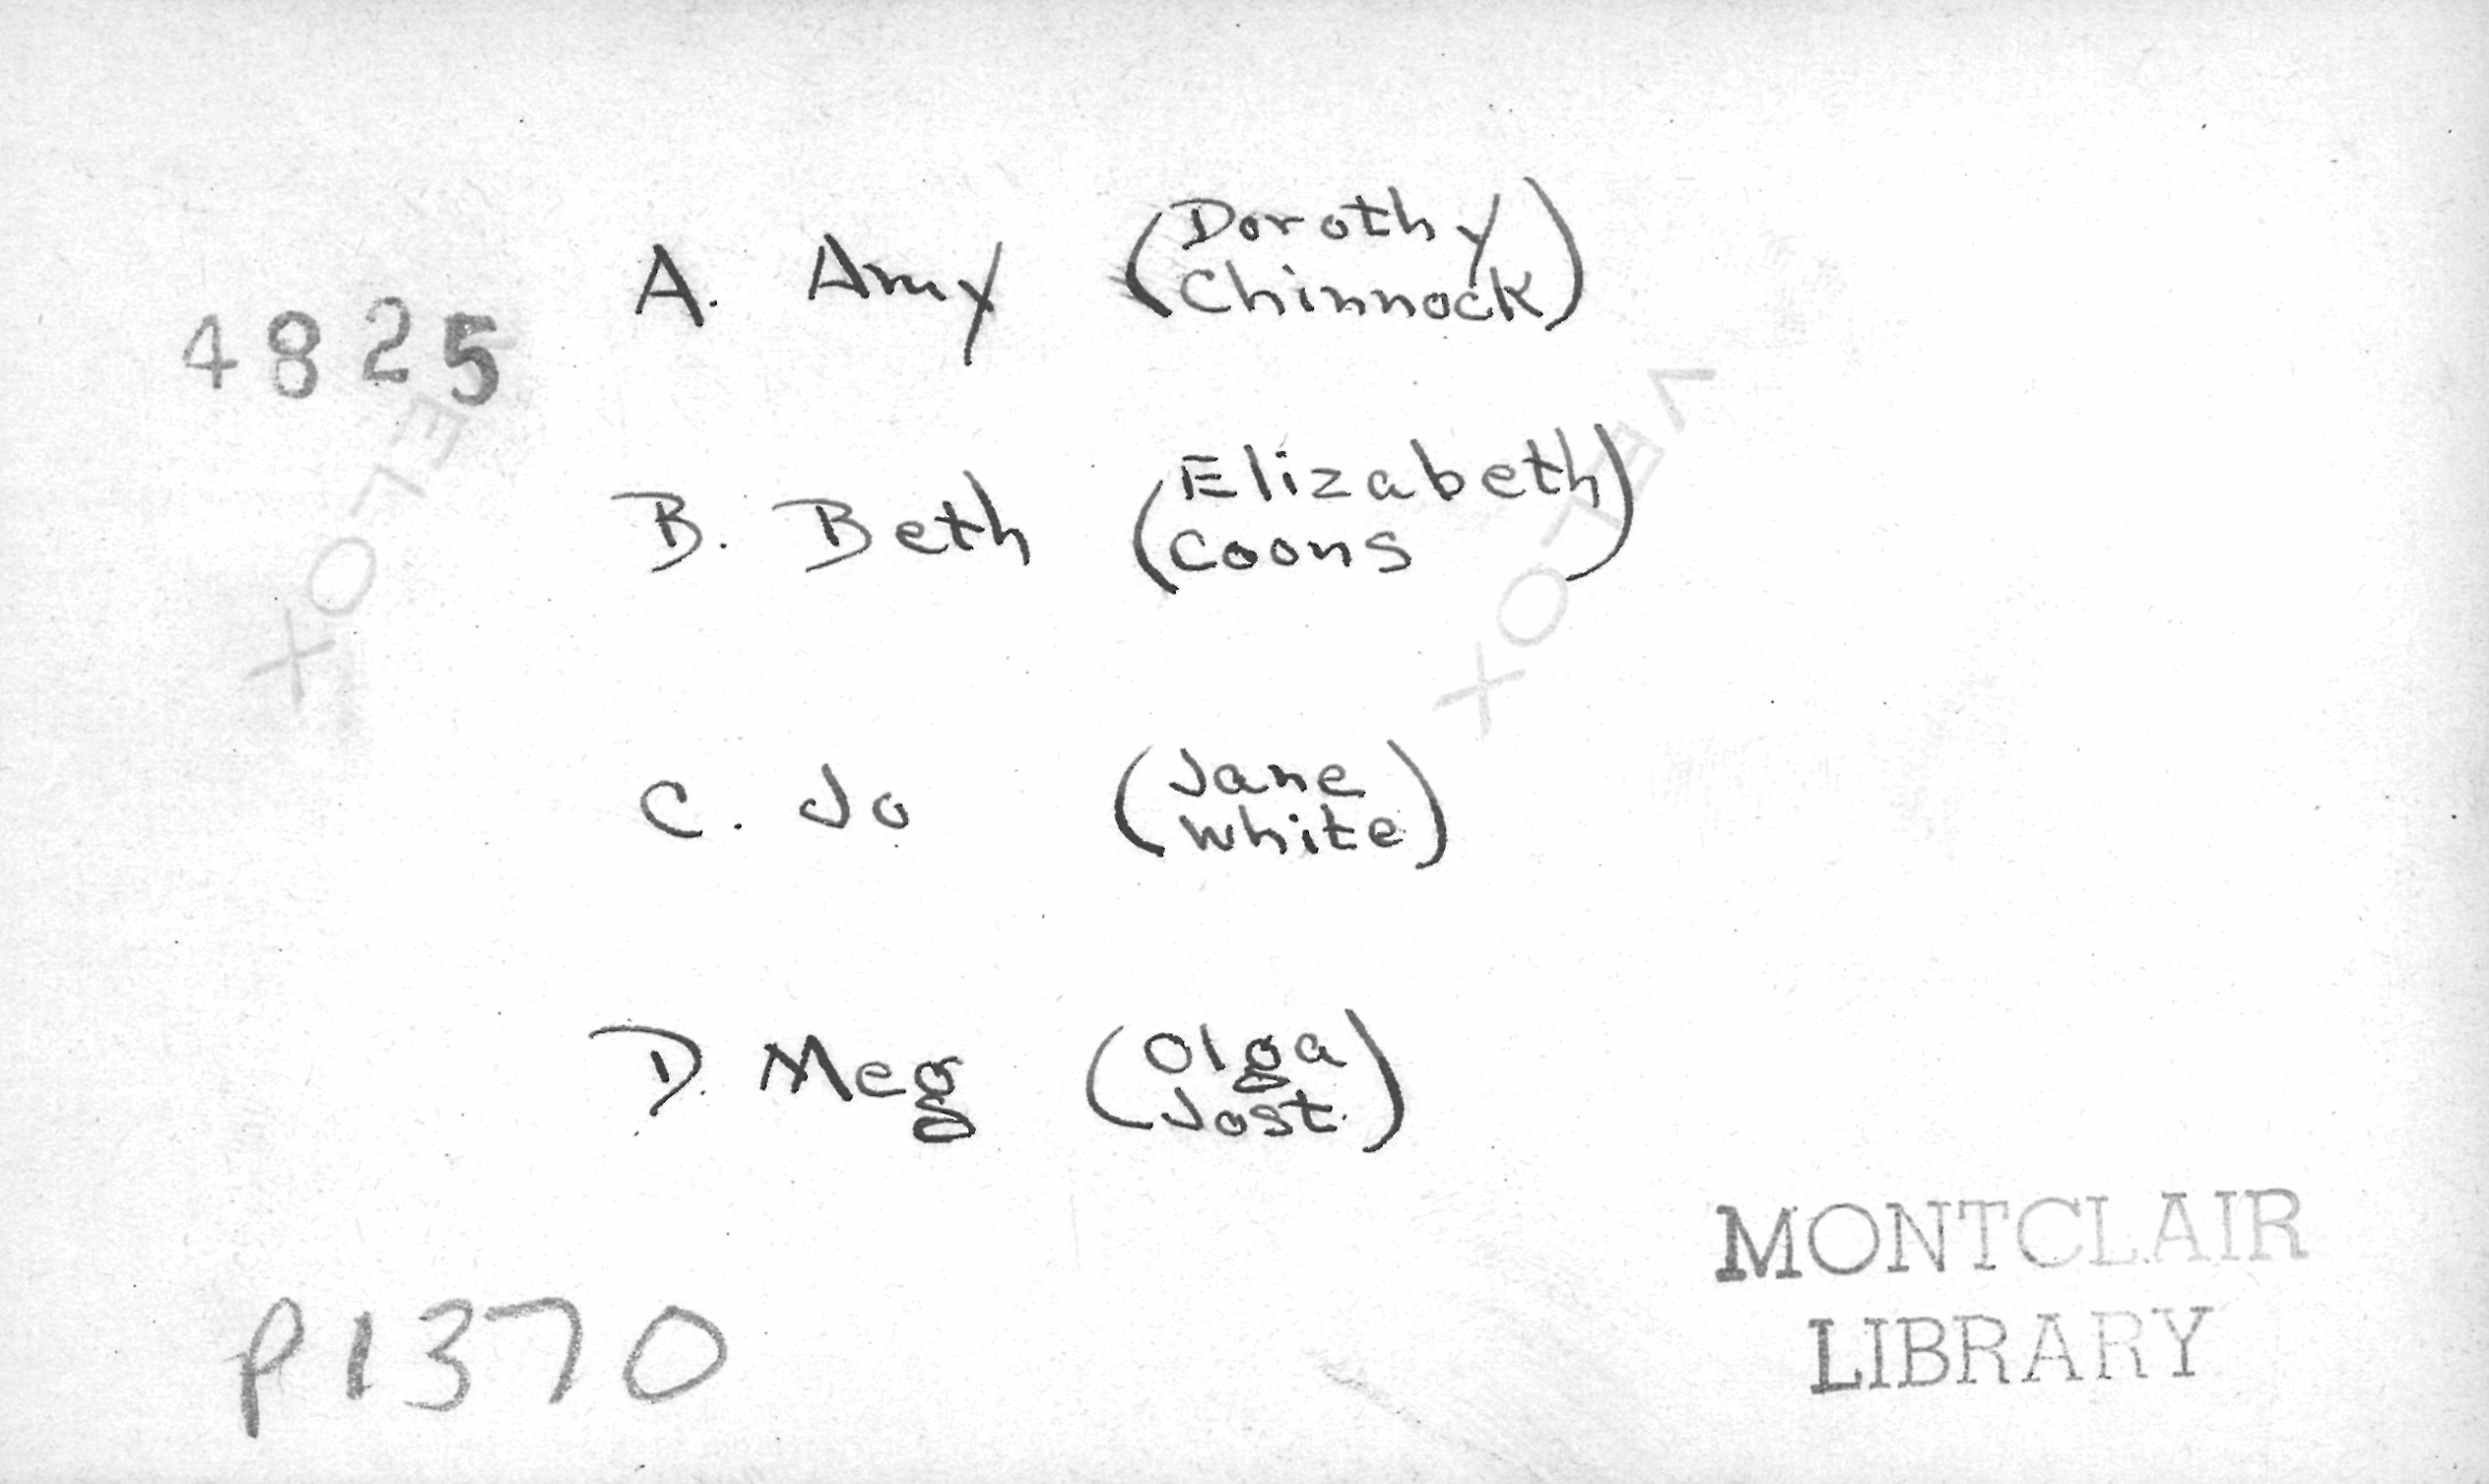 4825
A. Amy (Dorothy
Chinnock)
B. Beth (Elizabeth
Coons)
C. Jo (Jane
White)
D. Meg (Olga
Jost.)
P1370
MONTCLAIR
LIBRARY
ELOX
VELOX